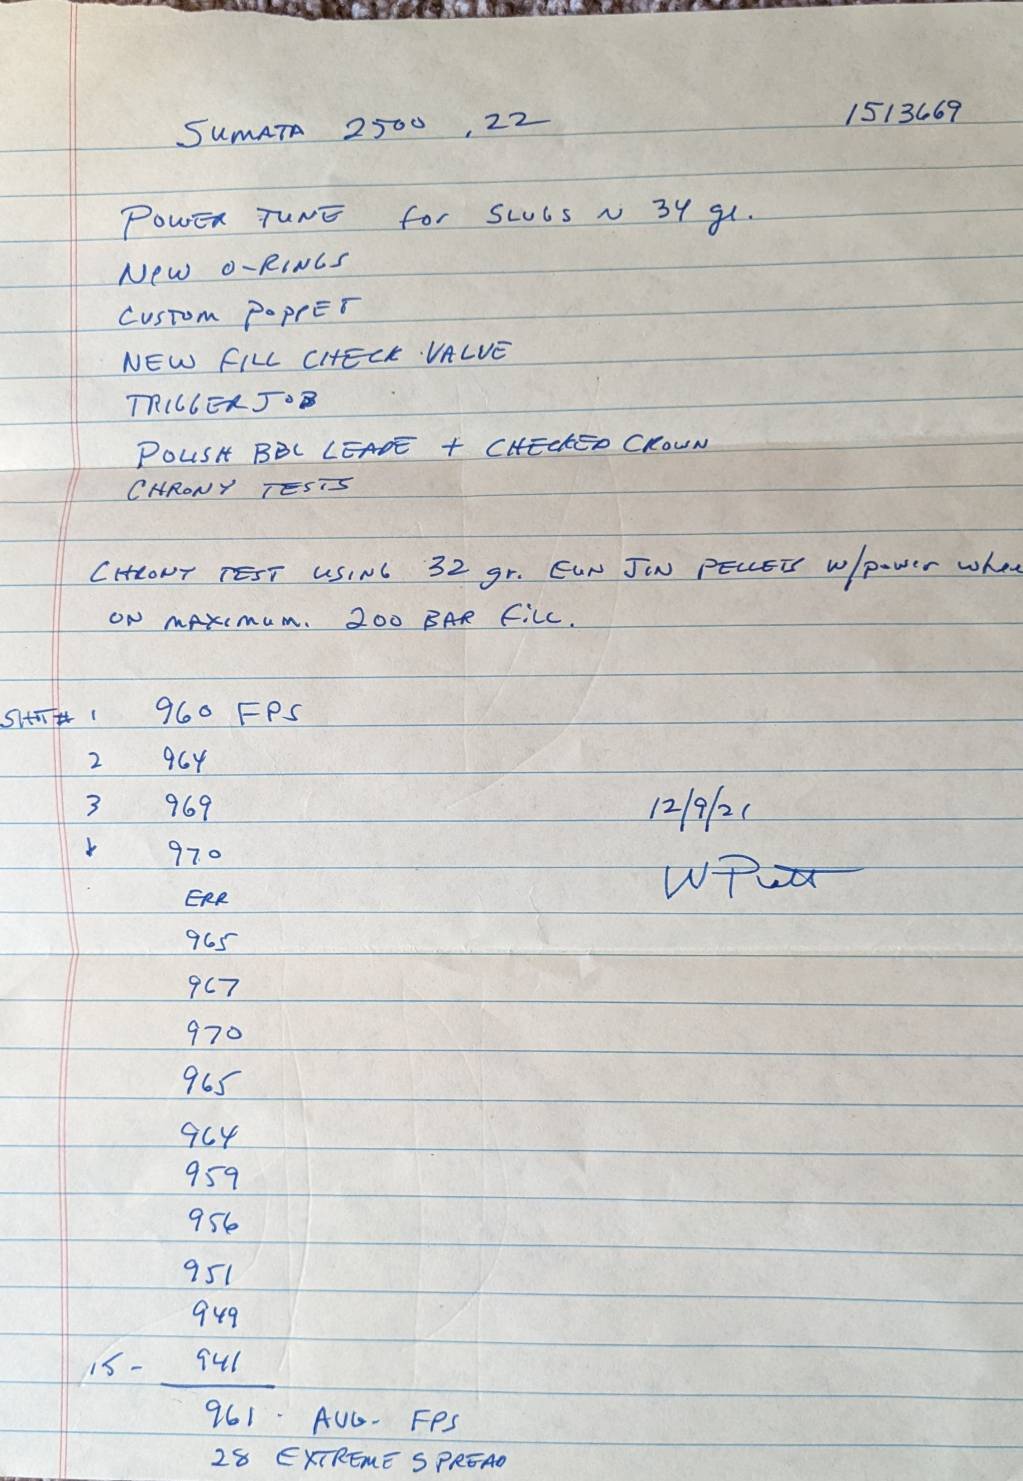 SUMATA 2500 .22 1513669
POWER TUNE for SLUGS ~ 34 gr.
New O-RINGS
CUSTOM POPPET
NEW FILL CHECK VALVE
TRIGGER JOB
POLISH BBL LEADE + CHECKED CROWN
CHRONY TESTS
CHRONY TEST USING 32 gr. EUN JIN PELLETS w/power whee
ON MAXIMUM. 200 BAR FILL.
SHOT # 1 960 FPS
2 964
3 969
↓ 970
ERR
965
967
970
965
964
959
956
951
949
15- 941
961 AVG. FPS
28 EXTREME SPREAD
12/9/21
W Pratt